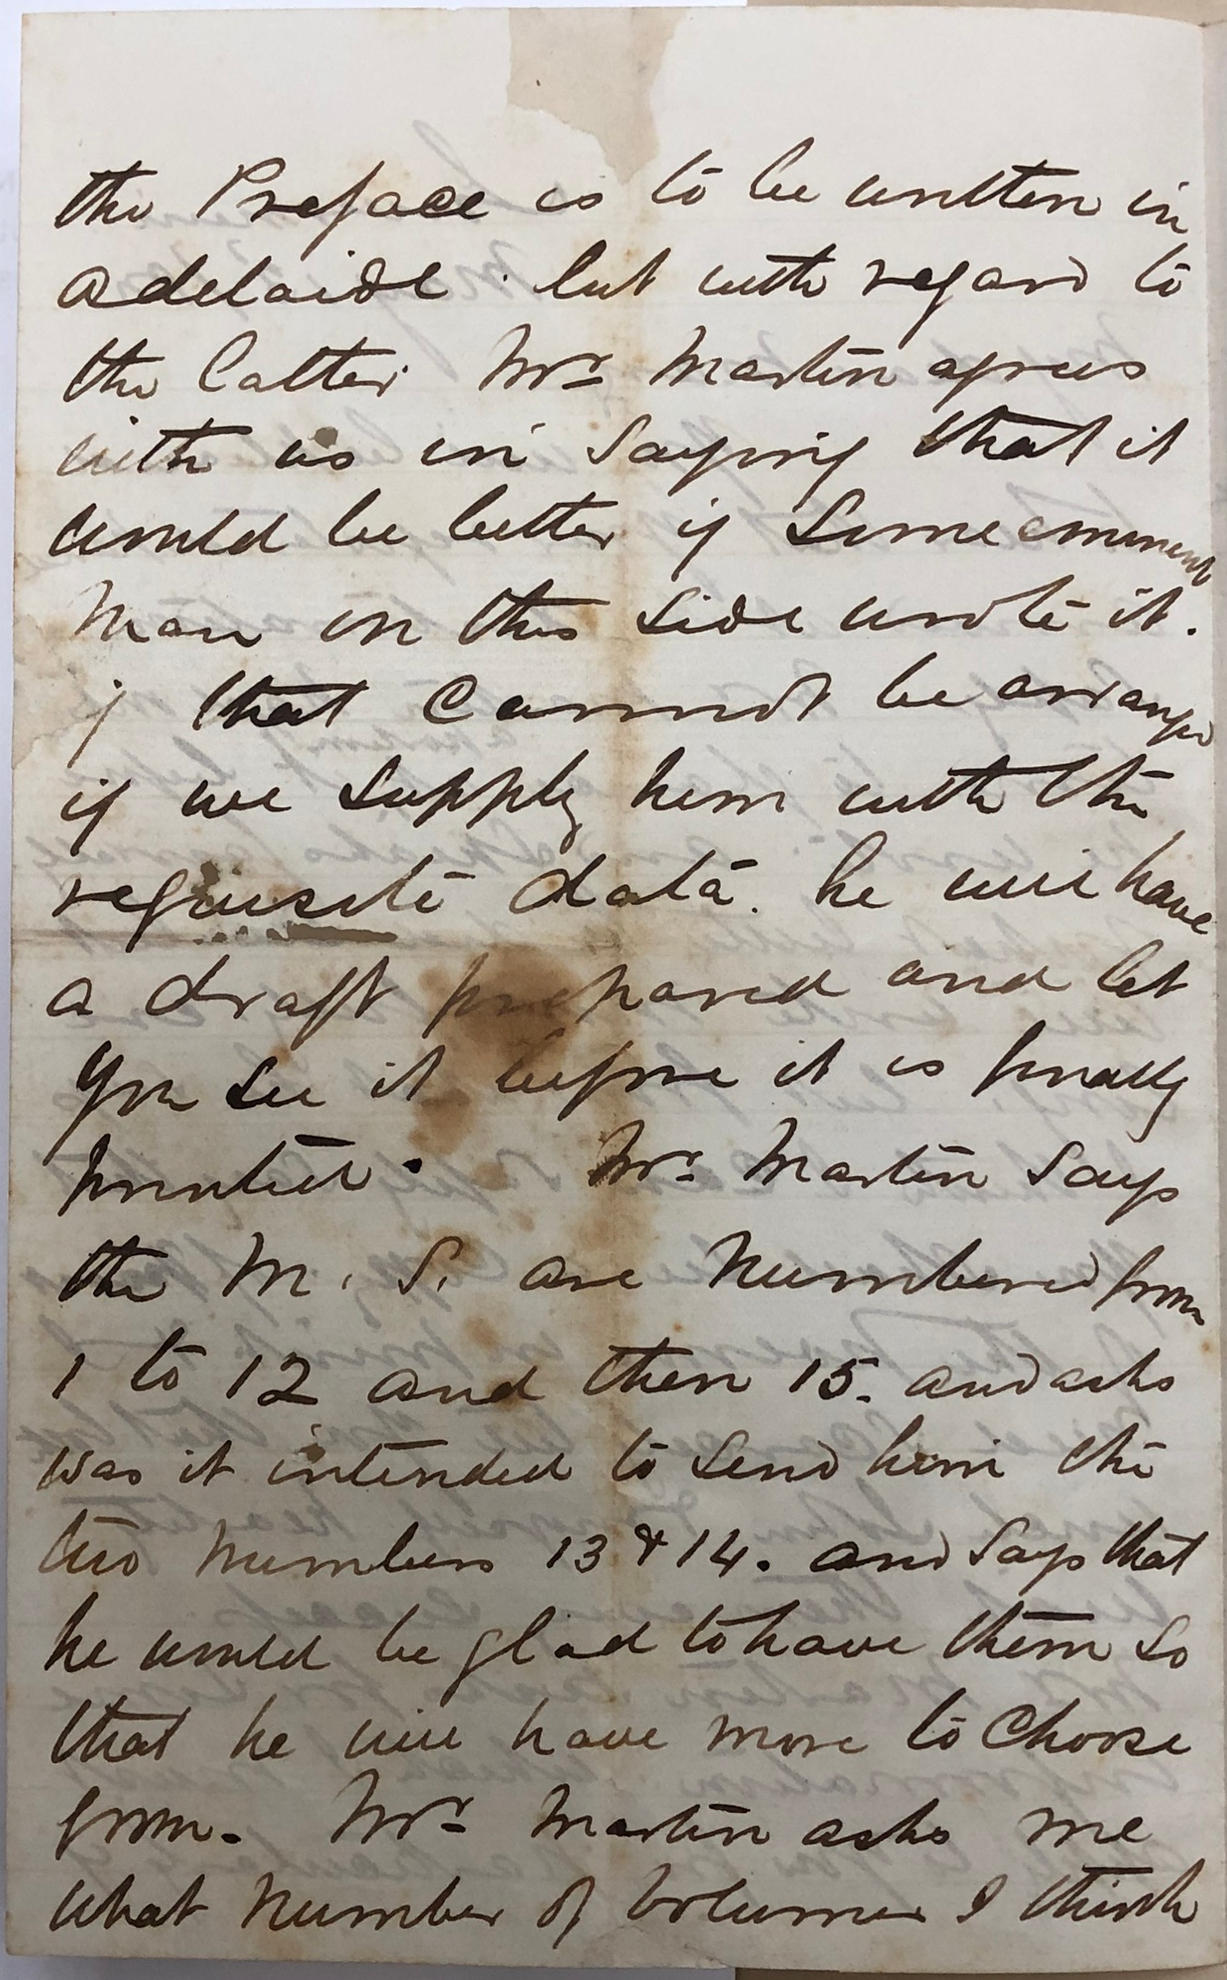 the Preface is to be written in
Adelaide. but with regard to
the latter Mr Martin agrees
with us in saying that it
would be better if some eminent
man on this side wrote it.
if that cannot be arranged
if we supply him with the
requisite data. he will have
a draft prepared and let
you see it before it is finally
printed. Mr Martin says
the M. S. are numbered from
1 to 12 and then 15. and asks
was it intended to send him the
two numbers 13 & 14. and says that
he would be glad to have them so
that he will have more to choose
from. Mr Martin asks me
what number of volumes I think